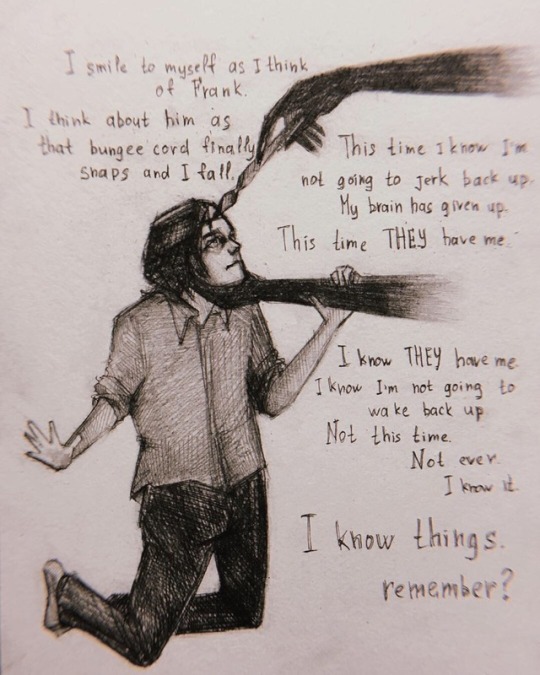 I smile to myself as I think
of Frank.
I think about him as
that bungee cord finally
snaps and I fall.
This time I know I'm
not going to jerk back up.
My brain has given up.
This time THEY have me.
I know THEY have me.
I know I'm not going to
wake back up.
Not this time.
Not ever.
I know it.
I know things.
remember?